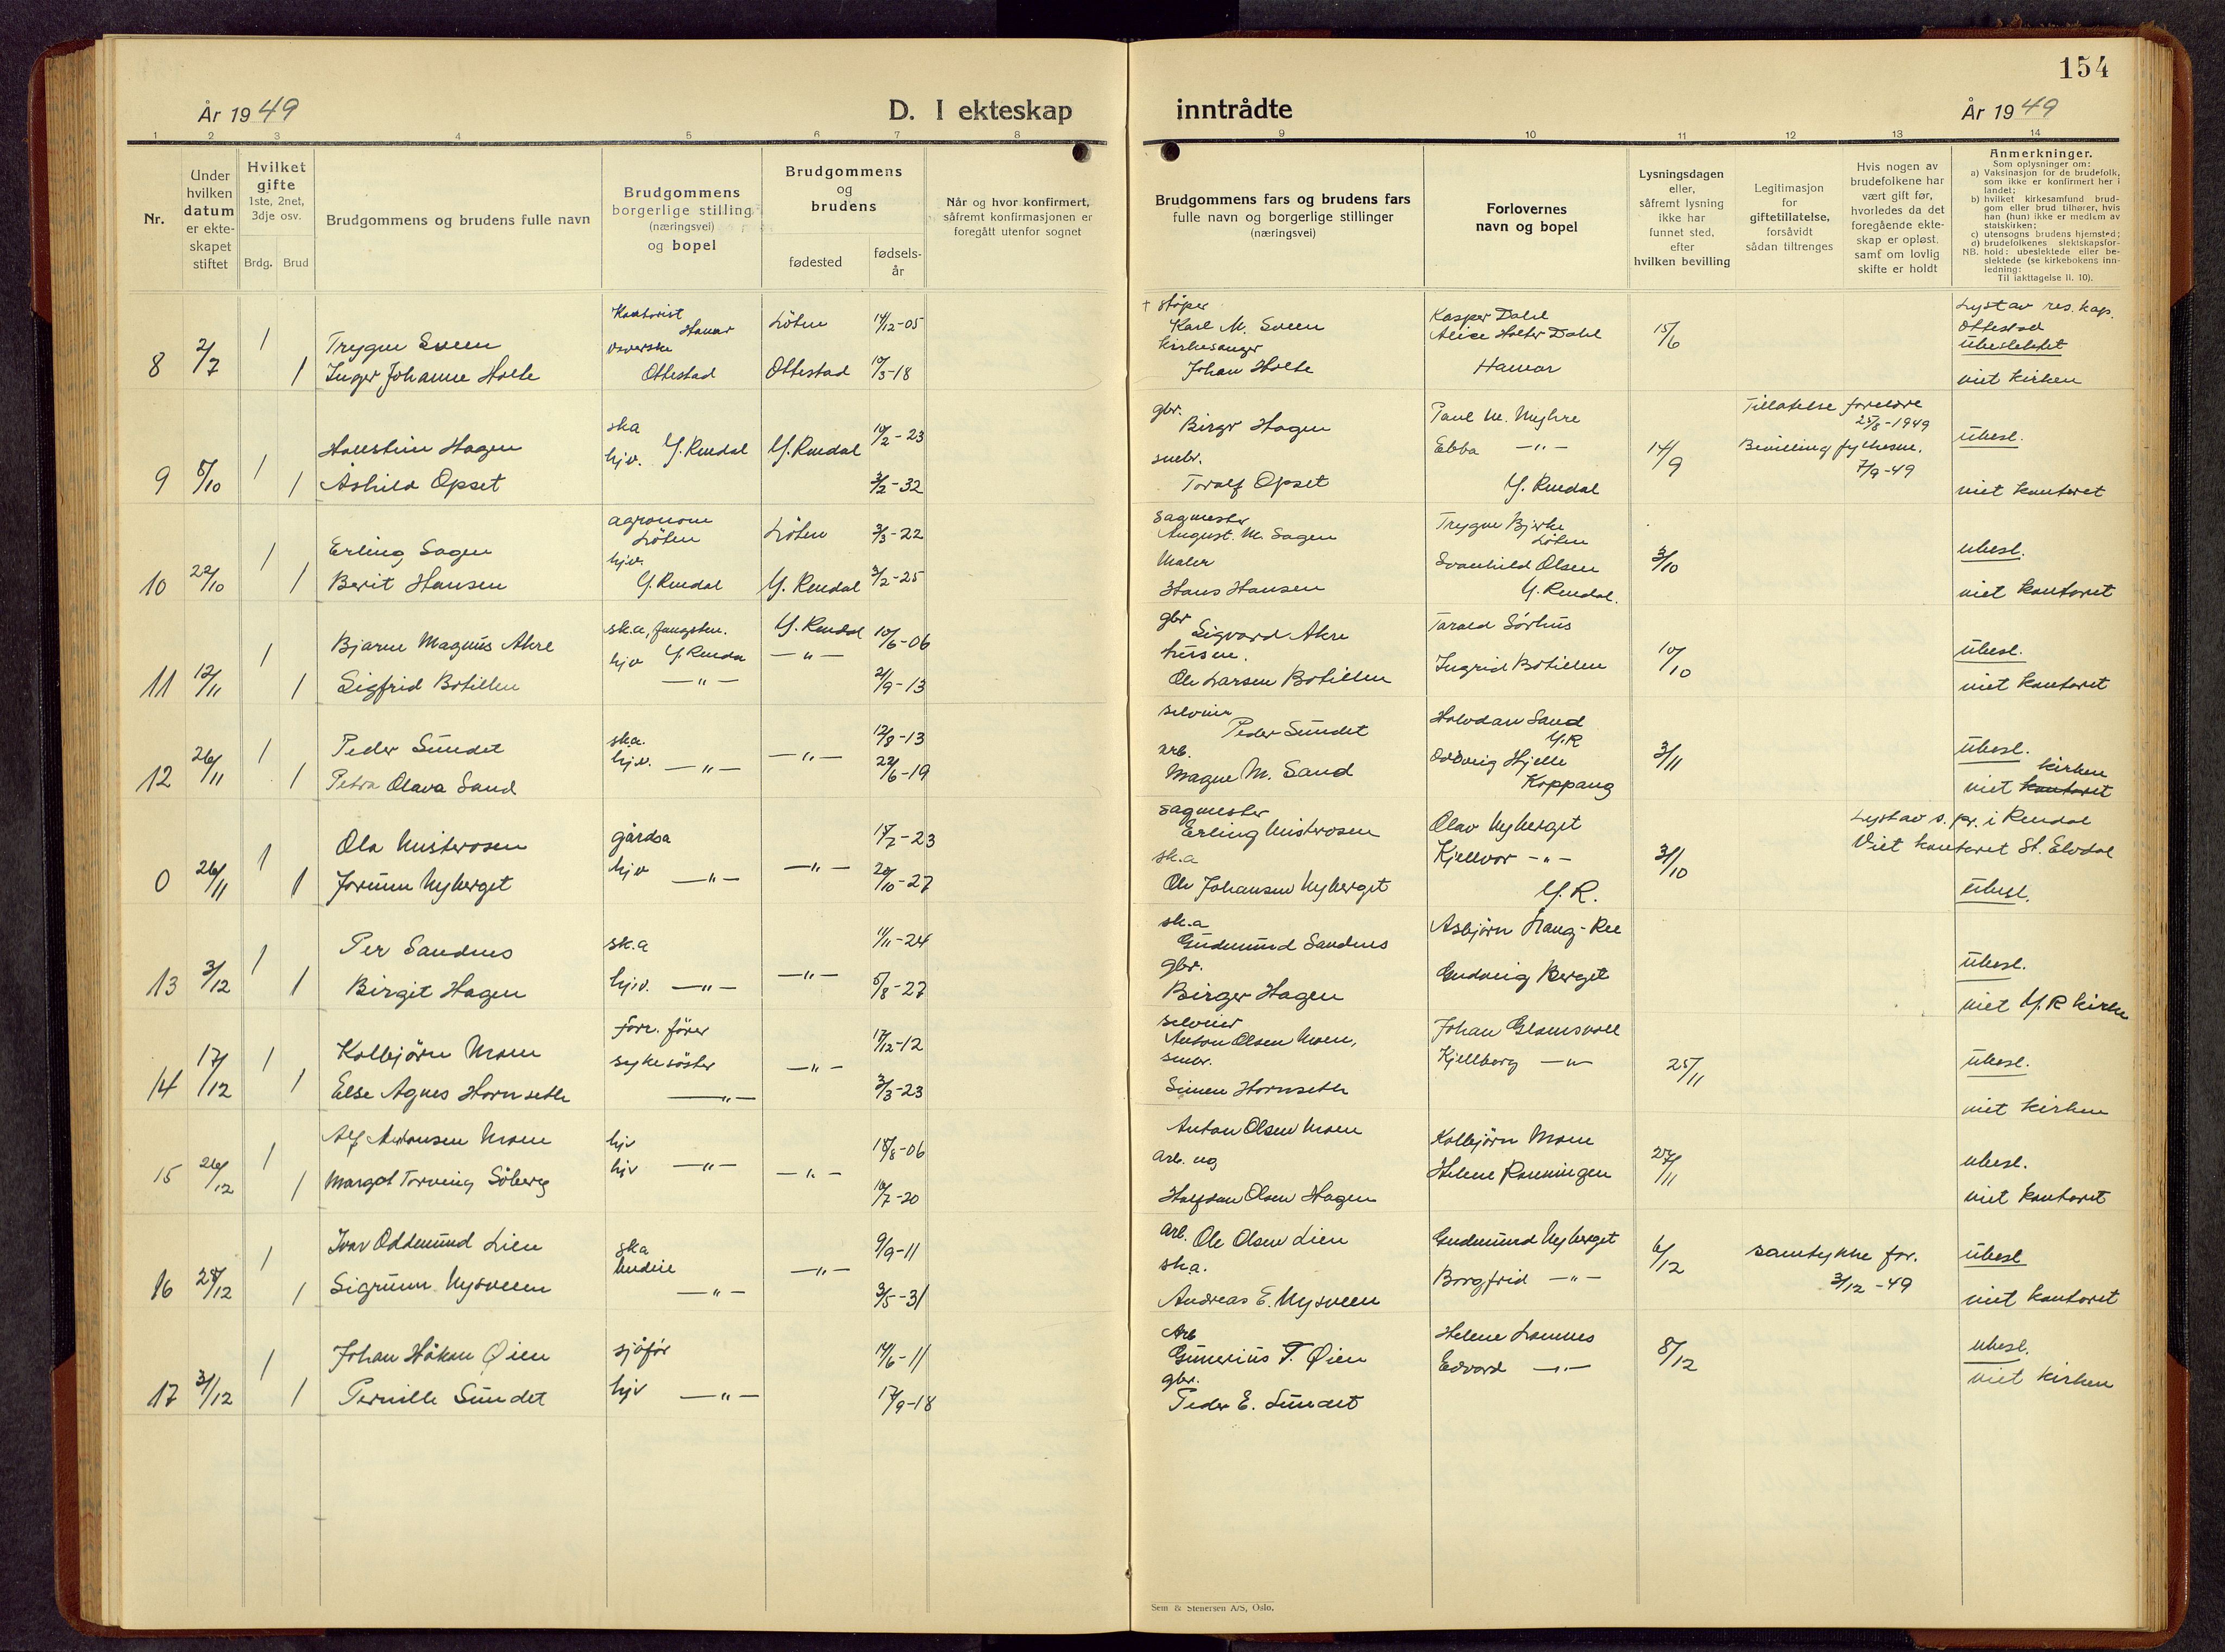 154
År 1949
D. I ekteskap
inntrådte
År 1949
1 2 3 4 5 6 7 8 9 10 11 12 13 14
Nr.
Under hvilken datum er ekte-skapet stiftet
Hvilket gifte 1ste, 2net, 3dje osv.
Brdg. Brud
Brudgommens og brudens fulle navn
Brudgommens borgerlige stilling (næringsvei) og bopel
Brudgommens og brudens
fødested
fødsels-år
Når og hvor konfirmert, såfremt konfirmasjonen er foregått utenfor sognet
Brudgommens fars og brudens fars fulle navn og borgerlige stillinger (næringsvei)
Forlovernes navn og bopel
Lysningsdagen eller, såfremt lysning ikke har funnet sted, efter hvilken bevilling
Legitimasjon for giftetillatelse, forsåvidt sådan tiltrenges
Hvis nogen av brudefolkene har vært gift før, hvorledes da det foregående ekte-skap er opløst, samt om lovlig skifte er holdt
Anmerkninger.
Som oplysninger om:
a) Vaksinasjon for de brudefolk, som ikke er konfirmert her i landet;
b) hvilket kirkesamfund brud-gom eller brud tilhører, hvis han (hun) ikke er medlem av statskirken;
c) utensogns brudens hjemsted;
d) brudefolkenes slektskapsfor-hold: ubeslektede eller be-slektede (se kirkebokens inn-ledning:
NB. Til iakttagelse II. 10).
8 2/7 1 Trygve Sveen Kontorist Hamar Löten 14/12-05
1 Inger Johanne Holte Ottestad Ottestad 10/5-18
+ støper Karl M. Sveen Kasper Dahl 15/6 Lyst av res. kap. Ottestad
Alice Holter Dahl ubeslektet
kirkesanger Johan Holte Hamar viet kirken
9 8/10 1 Haustein Hagen ska Y. Rendal Y. Rendal 10/2-23
1 Åshild Opset hjv. 3/2-32
gbr. Birger Hagen Paul M. Myhre 14/9 Tillatelse foreldre 25/8-1949 übesl.
Ebba -"- Bevilling fylkesm. 7/9-49
snekr. Toralf Opset Y. Rendal viet kontoret
10 22/10 1 Erling Sagen agronom Löten Löten 3/3-22
1 Berit Hansen hjv. Y. Rendal Y. Rendal 3/2-25
Sagmester August. M. Sagen Trygve Bjerke Löten 3/10 ubesl.
Maler Hans Hansen Svanhild Olsen Y. Rendal. viet kontoret
11 12/11 1 Bjarne Magnus Akre sk.a, Y. Rendal 10/6-06
1 Sigfrid Botillen hjv Y. Rendal -"- 21/9-13
gbr Sigvard Akre Tarald Sörhus 10/10 übesl.
Ole Larsen Botillen Ingrid Botillen viet kontoret
12 26/11 1 Peder Sundet ska. -"- 12/8-13
1 Petra Olava Sand hjv. -"- 22/6-19
selveier Peder Sundet Halvdan Sand Y.R 3/11 übesl.
arb. Magne M. Sand Oddveig Hjelle Koppang viet kontoret kirken
0 26/11 1 Ola Misterosen gårdsa -"- 15/7-23
1 Jorunn Nyberget hjv -"- 20/10-27
sagmester Erling Misterosen Olav Nyberget 31/10 Lyst av s. pr. i Rendal
sk.a Kjellvor -"- Viet kontoret St. Elvdal
Ole Johansen Nyberget Y. R. übesl.
13 3/12 1 Per Sandnes sk.a -"- 11/11-24
1 Birgit Hagen hjv. -"- 5/8-27
sk.a Gudmund Sandnes Asbjørn Haug-Ree übesl.
gbr. Birger Hagen Gudveig Berget viet Y. R kirke
14 17/12 1 Kolbjörn Moen forr. förer -"- 17/12-12
1 Else Agnes Hornseth sykesöster -"- 3/3-23
selveier Anton Olsen Moen, Johan Glomsvoll 25/11 übesl.
Simen Hornseth Kjellborg -"- viet kirken
15 26/12 1 Alf Antonsen Moen hjv -"- 18/8-06
1 Margot Torveig Söberg hjv -"- 10/7-20
Anton Olsen Moen Kolbjörn Moen 27/11 ubesl.
arb. og Halfdan Olsen Hagen Helene Rønningen viet kontoret
16 28/12 1 Ivar Oddmund Lien ska -"- 9/9-11
1 Sigrunn Nysveen budeie -"- 3/5-31
arb. Ole Olsen Lien Gudmund Nyberget 6/12 samtykke for. übesl
ska. Andreas E. Nysveen Borgfrid -"- 3/12-49 viet kontoret
17 31/12 1 Johan Håkon Øien sjåfør 14/6-11
1 Pernille Sundet hjv -"- 17/9-18
Arb Gunerius T. Øien Helene Lomnes 8/12 ubesl.
gbr. Peder E. Sundet Edvard -"- viet kirken
Sem & Stenersen A/S, Oslo.